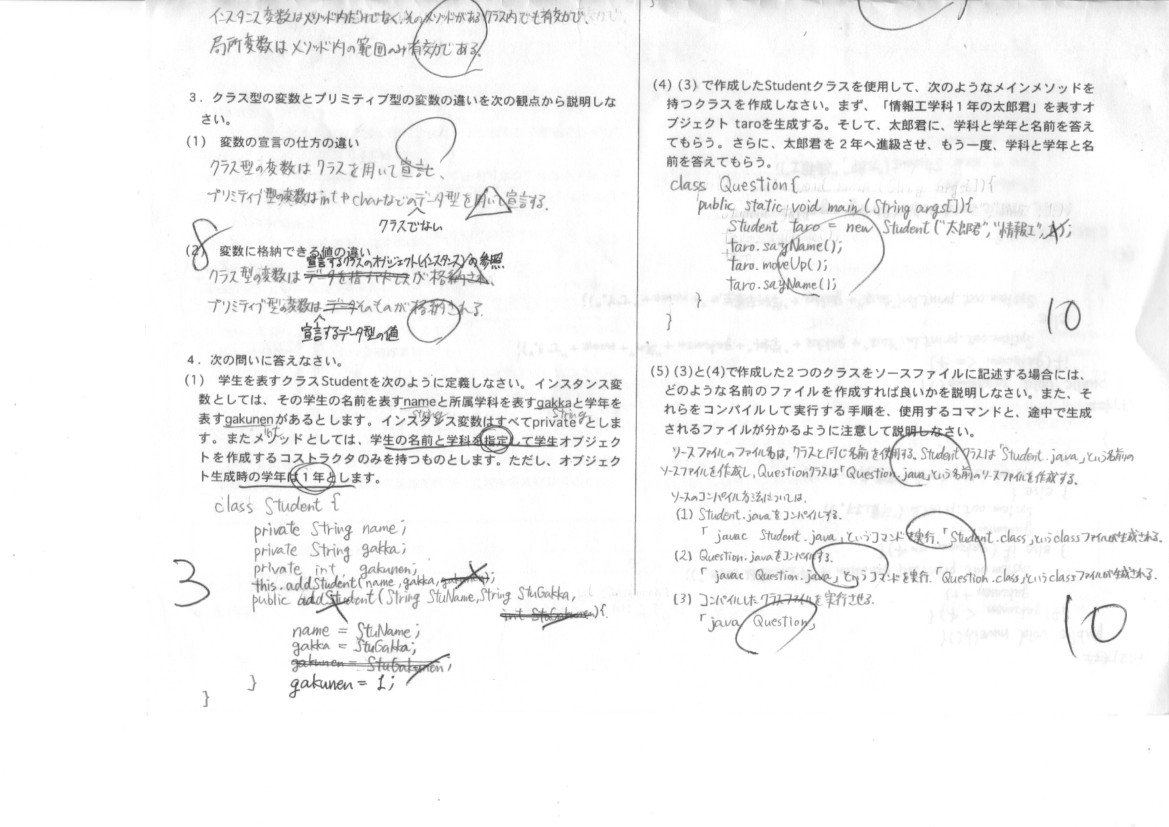 インスタンス変数はメソッド内だけでなく、そのメソッドがあるクラス内でも有効で、
局所変数はメソッド内の範囲のみ有効である。
3．クラス型の変数とプリミティブ型の変数の違いを次の観点から説明しな
さい。
(1) 変数の宣言の仕方の違い
クラス型の変数はクラスを用いて宣言し、
プリミティブ型の変数はintやcharなどのデータ型を用いて宣言する。
クラスでない
8
(2) 変数に格納できる値の違い
宣言するクラスのオブジェクト(インスタンス)の参照
クラス型の変数は が格納され、
プリミティブ型の変数は そのものが格納される。
宣言するデータ型の値
4．次の問いに答えなさい。
(1) 学生を表すクラスStudentを次のように定義しなさい。インスタンス変
数としては、その学生の名前を表すnameと所属学科を表すgakkaと学年を
表すgakunenがあるとします。インスタンス変数はすべてprivateとしま
String
String
す。またメソッドとしては、学生の名前と学科を指定して学生オブジェク
int
トを作成するコストラクタのみを持つものとします。ただし、オブジェク
ト生成時の学年は1年とします。
class Student {
private String name;
private String gakka;
private int gakunen;
this.addStudent(name, gakka, gakunen);
public addStudent(String StuName, String StuGakka,
int StuGakunen){
name = StuName;
gakka = StuGakka;
gakunen = StuGakunen;
} gakunen = 1;
}
3
(4) (3) で作成したStudentクラスを使用して、次のようなメインメソッドを
持つクラスを作成しなさい。まず、「情報工学科１年の太郎君」を表すオ
ブジェクト taroを生成する。そして、太郎君に、学科と学年と名前を答え
てもらう。さらに、太郎君を２年へ進級させ、もう一度、学科と学年と名
前を答えてもらう。
class Question{
public static void main(String args[]){
Student taro = new Student("太郎君","情報工");
taro.sayName();
taro.moveUp();
taro.sayName();
}
}
10
(5) (3)と(4)で作成した２つのクラスをソースファイルに記述する場合には、
どのような名前のファイルを作成すれば良いかを説明しなさい。また、そ
れらをコンパイルして実行する手順を、使用するコマンドと、途中で生成
されるファイルが分かるように注意して説明しなさい。
ソースファイルのファイル名は、クラスと同じ名前を使用する。Studentクラスは「Student.java」という名前の
ソースファイルを作成し、Questionクラスは「Question.java」という名前のソースファイルを作成する。
ソースのコンパイル方法については、
(1) Student.javaをコンパイルする。
「javac Student.java」というコマンドを実行、「Student.class」というclassファイルが生成される。
(2) Question.javaをコンパイルする。
「javac Question.java」というコマンドを実行、「Question.class」というclassファイルが生成される。
(3) コンパイルしたクラスファイルを実行させる。
「java Question」
10